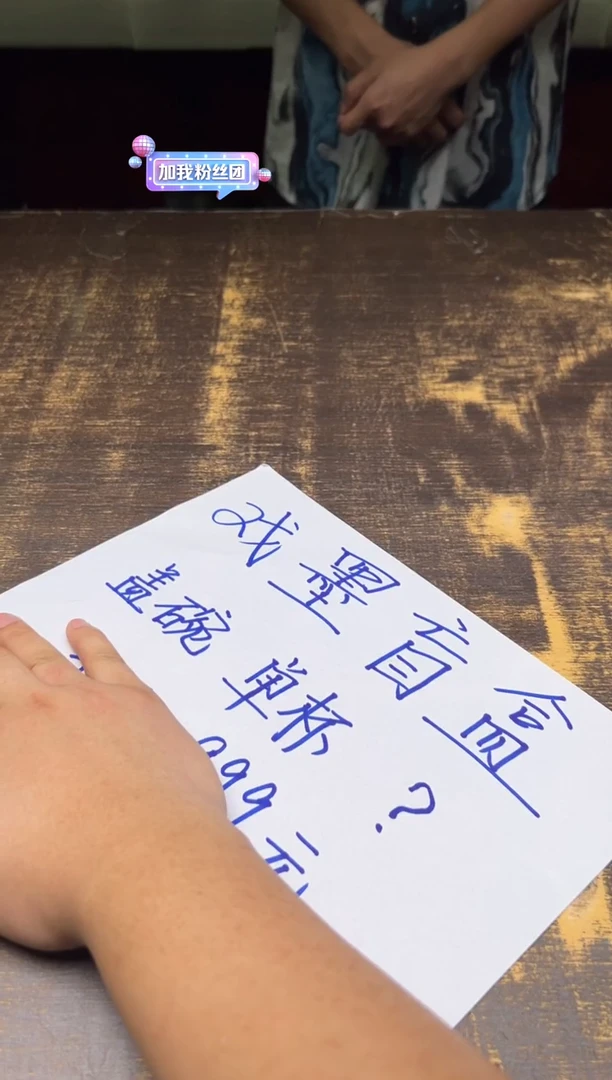 加我粉丝团
戏墨盲盒
盖碗 单杯 ?
999元